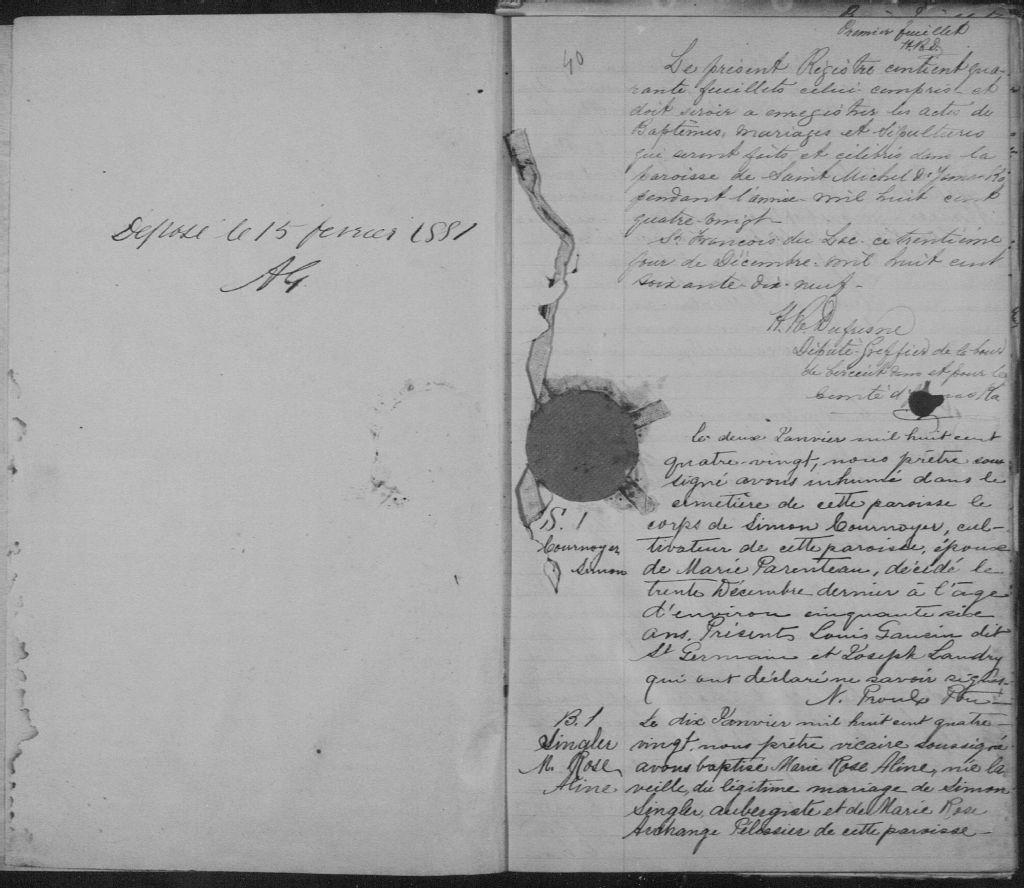 Déposé le 15 fevrier 1881
AG
40
Premier feuillet
H.R.D.
Le présent Registre contient qua-
rante feuillets celui compris et
doit servir a enregistrer les actes de
Baptêmes, mariages et Sépultures
qui seront faits et célébrés dans la
paroisse de Saint Michel D'Yamaska
pendant l'année mil huit cent
quatre-vingt-
St François du Lac ce trentième
jour de Décembre mil huit cent
soixante-dix-neuf-
H. R. Dufresne
Député-Greffier de la Cour
de Circuit dans et pour le
Comté d'Yamaska
S. 1
Cournoyer
Simon
Le deux Janvier mil huit cent
quatre-vingt, nous prêtre sous-
signé avons inhumé dans le
cimetière de cette paroisse le
corps de Simon Cournoyer, cul-
tivateur de cette paroisse, époux
de Marie Parenteau, décédé le
trente Décembre dernier à l'âge
d'environ cinquante six
ans. Présents Louis Gausin dit
St Germain et Joseph Landry
qui ont déclaré ne savoir signer.
N. Proulx Ptre
B. 1
Singler
M. Rose
Aline
Le dix Janvier mil huit cent quatre-
vingt, nous prêtre vicaire soussigné
avons baptisé Marie Rose Aline, née la
veille, du légitime mariage de Simon
Singler, aubergiste et de Marie Rose
Archange Pélissier de cette paroisse-